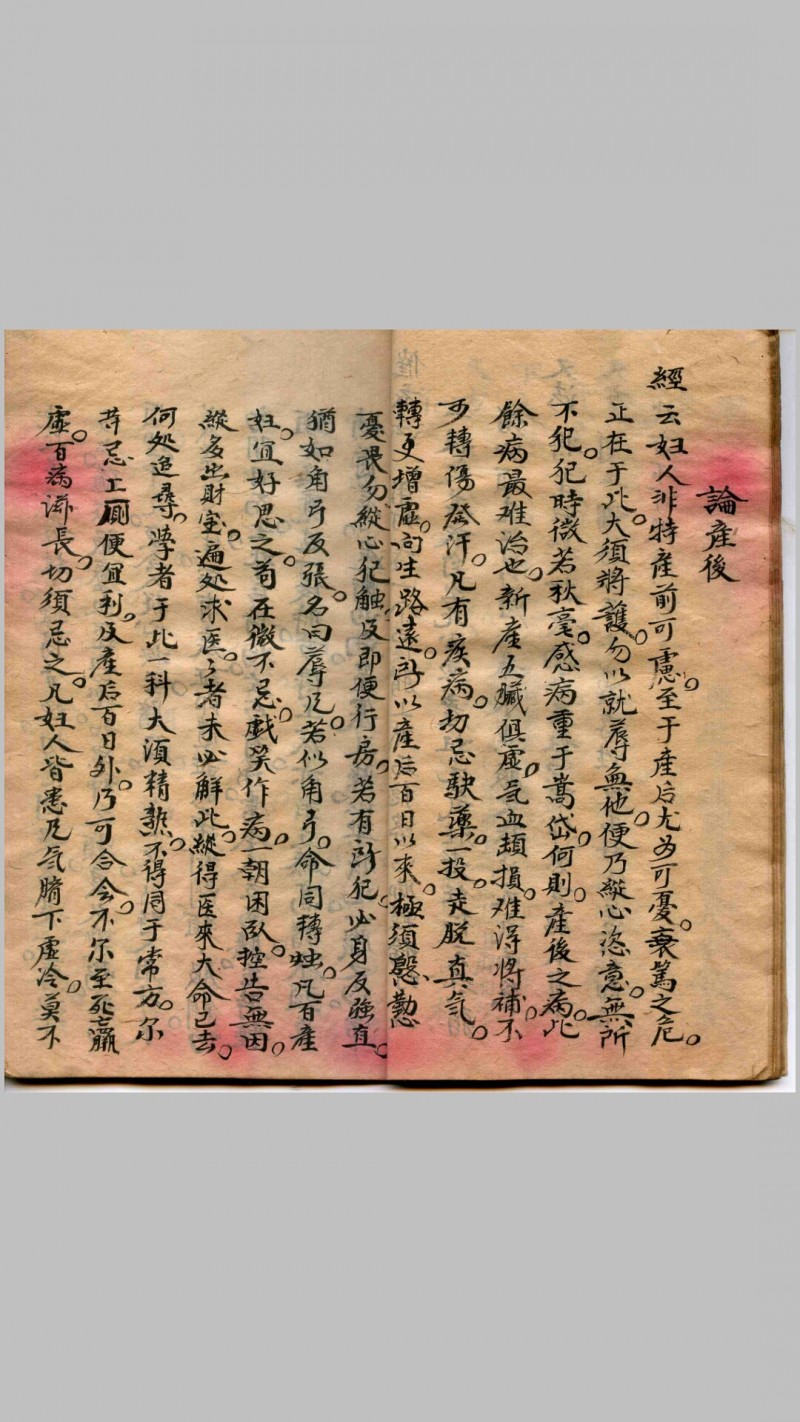 論產後
經云妇人非特產前可慮。至于產后尤为可憂。衰篤之危。
正在于此。大须將護。勿以就蓐無他。便乃縱心恣意。無所
不犯。犯時微若秋毫。感病重于嵩岱。何則。產後之病。比
餘病最难治也。新產五臟俱虛。气血損。难得將補。不
可轉傷發汗。凡有疾病。切忌駃藥。一投。走脱真气。
轉更增虛。向生路遠。所以產后百日以來。極須慇懃
憂畏。勿縱心犯触。及即便行房。若有所犯。必身反強直。
猶如角弓反張。名曰蓐风。若似角弓。命同轉烛。凡百產
妇。宜好思之。苟在微不忌。戯笑作病。一朝困卧。控告無因。
縱多出財宝。遍处求医。々者未必解此。縱得医來。大命已去。
何处追尋。学者于此一科。大须精熟。不得同于常方。尔
忌上厠便宜利。及產后百日外。乃可合会。不尔至死羸
虛。百病滋長。切须忌之。凡妇人皆患风气臍下虛冷。莫不